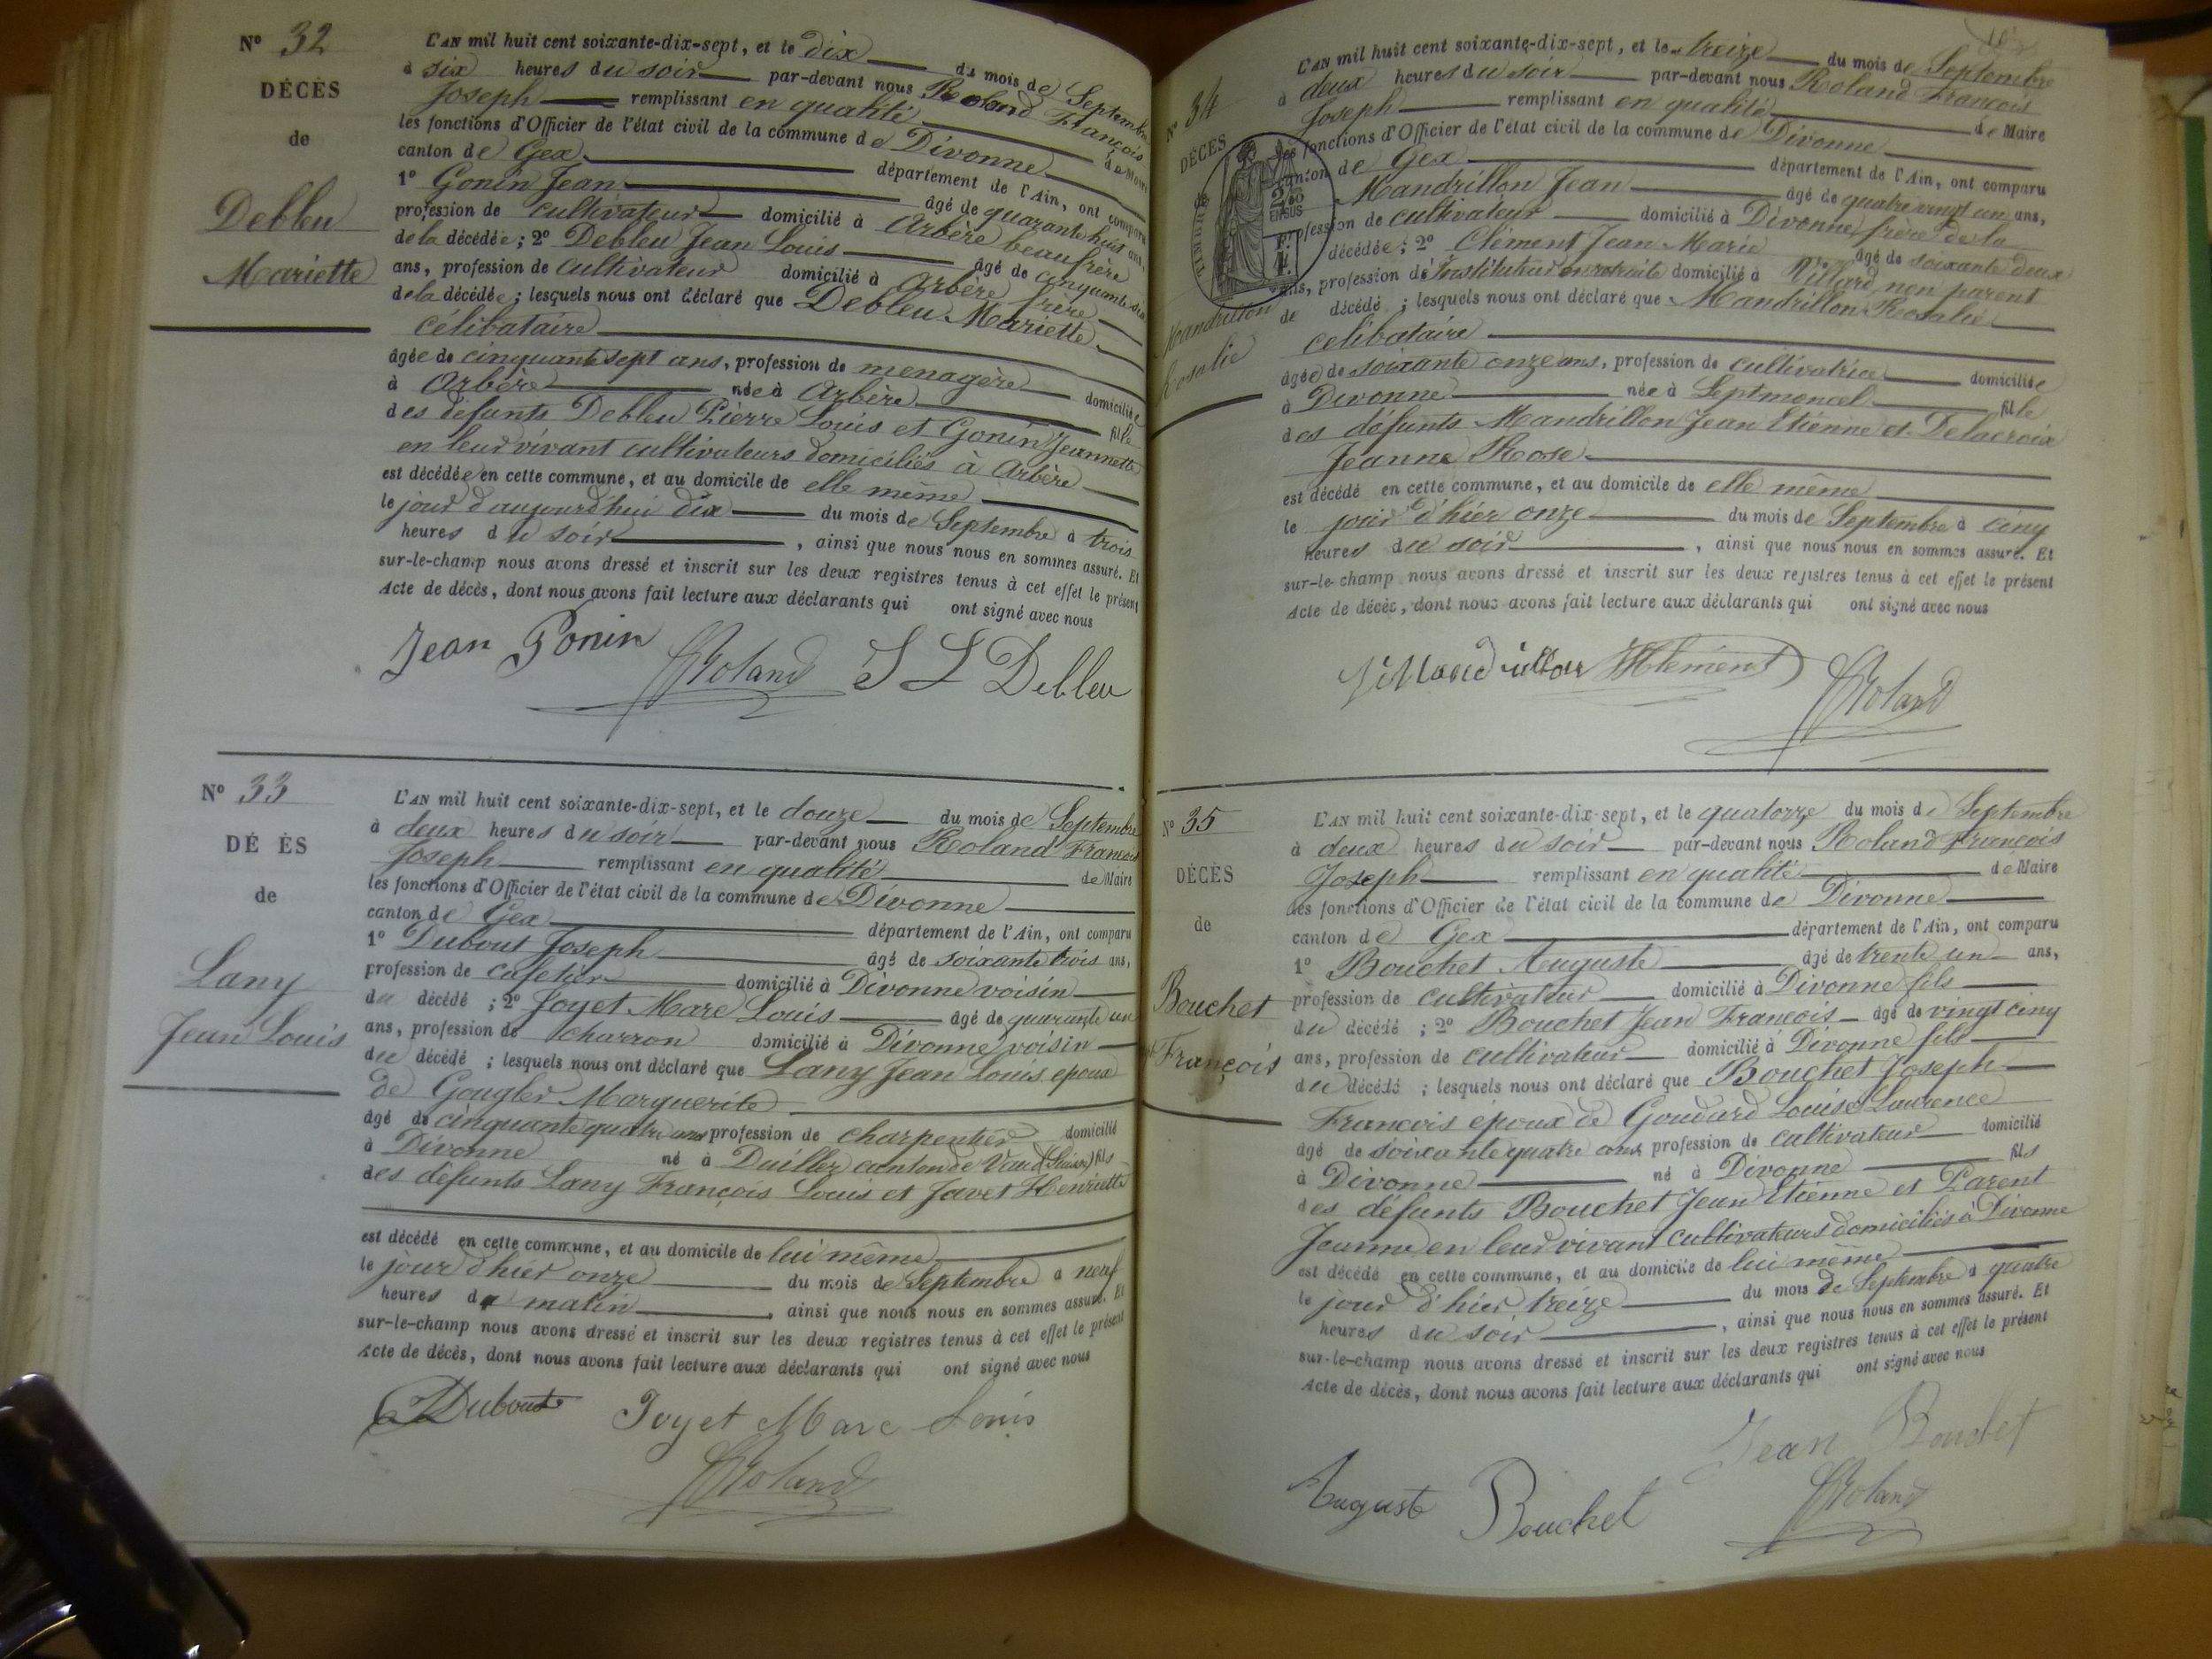 Nº 32
DÉCÈS
de
Debleu
Mariette
L'AN mil huit cent soixante-dix-sept, et le dix du mois de Septembre
à six heures du soir par-devant nous Roland François
Joseph remplissant en qualité de Maire
les fonctions d'Officier de l'état civil de la commune de Divonne
canton de Gex département de l'Ain, ont comparu
1º Gonin Jean âgé de quarante huit ans,
profession de cultivateur domicilié à Arbère beau frère
de la décédée; 2º Debleu Jean Louis âgé de cinquante six
ans, profession de cultivateur domicilié à Arbère frère
de la décédée; lesquels nous ont déclaré que Debleu Mariette
célibataire
âgée de cinquante sept ans, profession de menagère domiciliée
à Arbère née à Arbère fille
des défunts Debleu Pierre Louis et Gonin Jeannette
en leur vivant cultivateurs domiciliés à Arbère
est décédée en cette commune, et au domicile de elle même
le jour d'aujourd'hui dix du mois de Septembre à trois
heures du soir, ainsi que nous nous en sommes assuré. Et
sur-le-champ nous avons dressé et inscrit sur les deux registres tenus à cet effet le présent
Acte de décès, dont nous avons fait lecture aux déclarants qui ont signé avec nous
Jean Gonin Roland J L Debleu
Nº 33
DÉ ÈS
de
Lany
Jean Louis
L'AN mil huit cent soixante-dix-sept, et le douze du mois de Septembre
à deux heures du soir par-devant nous Roland François
Joseph remplissant en qualité de Maire
les fonctions d'Officier de l'état civil de la commune de Divonne
canton de Gex département de l'Ain, ont comparu
1º Dubout Joseph âgé de soixante trois ans,
profession de cafetier domicilié à Divonne voisin
du décédé ; 2º Joyet Marc Louis âgé de quarante un
ans, profession de charron domicilié à Divonne voisin
du décédé ; lesquels nous ont déclaré que Lany Jean Louis epoux
de Gougler Marguerite
âgé de cinquante quatre ans profession de charpentier domicilié
à Divonne né à Duiller canton de Vaud (Suisse) fils
des défunts Lany François Louis et Javet Henriette
est décédé en cette commune, et au domicile de lui même
le jour d'hier onze du mois de Septembre à neuf
heures du matin, ainsi que nous nous en sommes assuré. Et
sur-le-champ nous avons dressé et inscrit sur les deux registres tenus à cet effet le présent
Acte de décès, dont nous avons fait lecture aux déclarants qui ont signé avec nous
Dubout Joyet Marc Louis
Roland
Nº 34
DÉCÈS
de
Mandrillon
Rosalie
L'AN mil huit cent soixante-dix-sept, et le treize du mois de Septembre
à deux heures du soir par-devant nous Roland François
Joseph remplissant en qualité de Maire
les fonctions d'Officier de l'état civil de la commune de Divonne
canton de Gex département de l'Ain, ont comparu
Mandrillon Jean âgé de quatre vingt un ans,
profession de cultivateur domicilié à Divonne frère de la
décédée; 2º Clément Jean Marie âgé de soixante deux
ans, profession de Instituteur en retraite domicilié à Villard non parent
de décédé ; lesquels nous ont déclaré que Mandrillon Rosalie
celibataire
âgée de soixante onze ans, profession de cultivatrice domiciliée
à Divonne née à Septmoncel fille
des défunts Mandrillon Jean Etienne et Delacroix
Jeanne Rose
est décédé en cette commune, et au domicile de elle même
le jour d'hier onze du mois de Septembre à cinq
heures du soir, ainsi que nous nous en sommes assuré. Et
sur-le-champ nous avons dressé et inscrit sur les deux registres tenus à cet effet le présent
Acte de décès, dont nous avons fait lecture aux déclarants qui ont signé avec nous
J Mandrillon Clément
Roland
Nº 35
DÉCÈS
de
Bouchet
François
L'AN mil huit cent soixante-dix-sept, et le quatorze du mois de Septembre
à deux heures du soir par-devant nous Roland François
Joseph remplissant en qualité de Maire
les fonctions d'Officier de l'état civil de la commune de Divonne
canton de Gex département de l'Ain, ont comparu
1º Bouchet Auguste âgé de trente un ans,
profession de cultivateur domicilié à Divonne fils
du décédé ; 2º Bouchet Jean François âgé de vingt cinq
ans, profession de cultivateur domicilié à Divonne fils
du décédé ; lesquels nous ont déclaré que Bouchet Joseph
François époux de Goudard Louise Laurence
âgé de soixante quatre ans profession de cultivateur domicilié
à Divonne né à Divonne fils
des défunts Bouchet Jean Etienne et Parent
Jeanne en leur vivant cultivateurs domiciliés à Divonne
est décédé en cette commune, et au domicile de lui même
le jour d'hier treize du mois de Septembre à quatre
heures du soir, ainsi que nous nous en sommes assuré. Et
sur-le-champ nous avons dressé et inscrit sur les deux registres tenus à cet effet le présent
Acte de décès, dont nous avons fait lecture aux déclarants qui ont signé avec nous
Jean Bouchet
Auguste Bouchet Roland